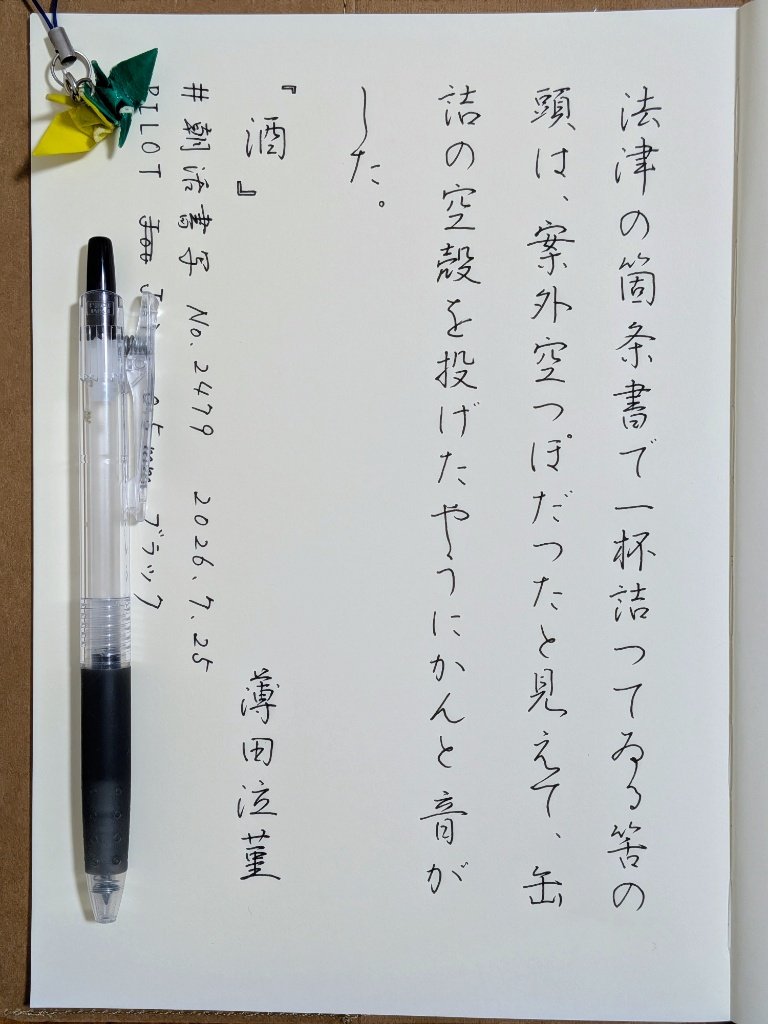 法津の箇条書で一杯詰つてゐる筈の
頭は、案外空つぽだつたと見えて、缶
詰の空殻を投げたやうにかんと音が
した。
『酒』
薄田泣菫
#朝活書写 No.2479 2026.7.25
PILOT ブラック